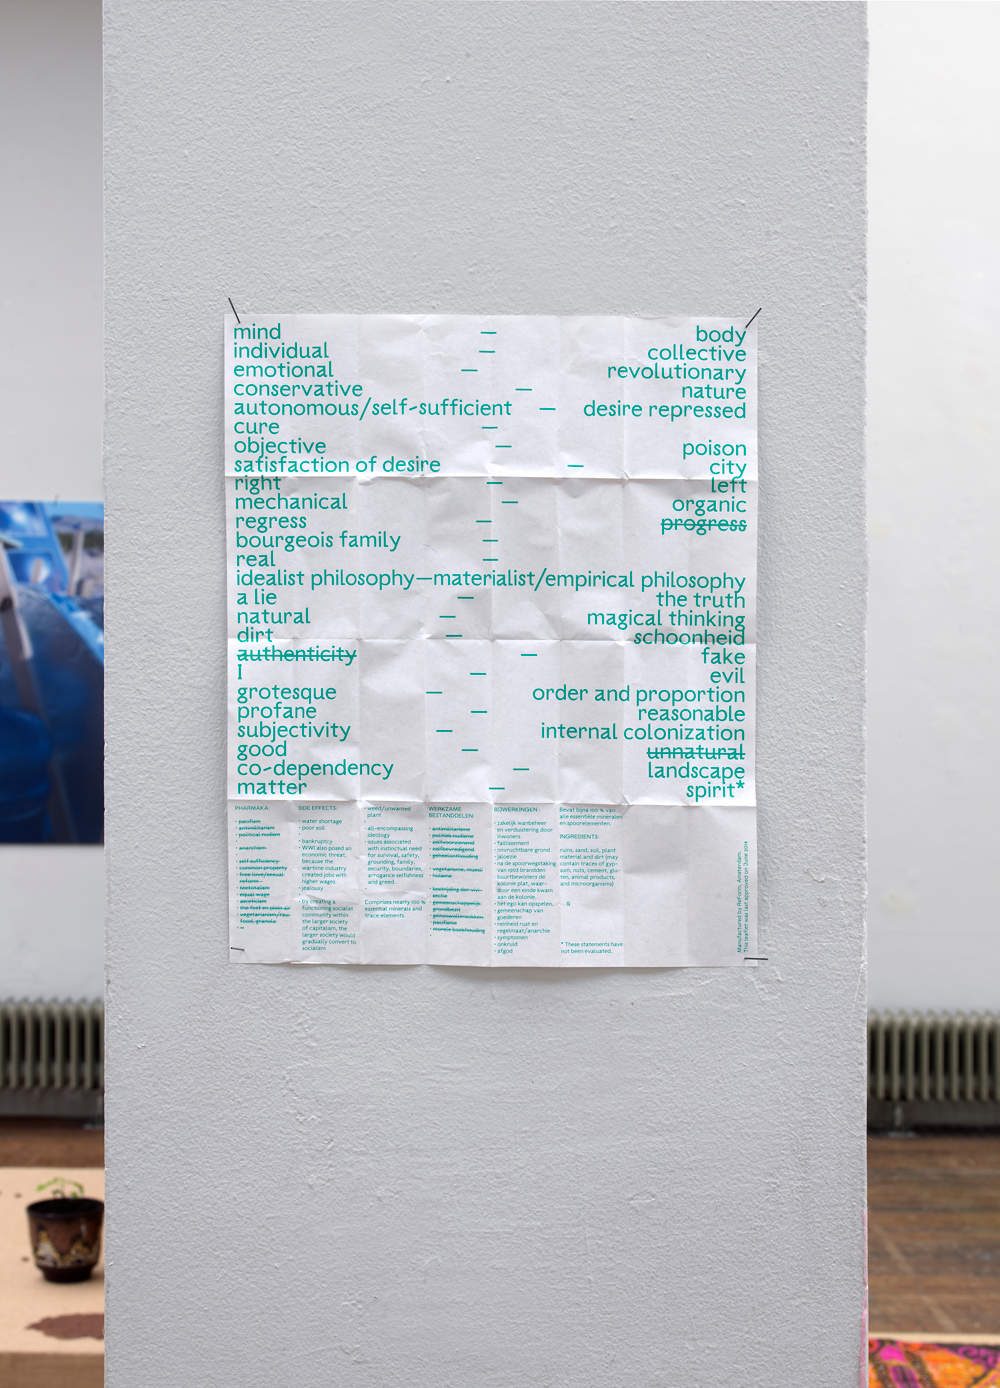 mind — body
individual — collective
emotional — revolutionary
conservative — nature
autonomous/self-sufficient — desire repressed
cure —
objective — poison
satisfaction of desire — city
right — left
mechanical — organic
regress — progress
bourgeois family —
real —
idealist philosophy—materialist/empirical philosophy
a lie — the truth
natural — magical thinking
dirt — schoonheid
authenticity — fake
I — evil
grotesque — order and proportion
profane — reasonable
subjectivity — internal colonization
good — unnatural
co-dependency — landscape
matter — spirit*
PHARMAKA:
· pacifism
· antimilitarism
· political nudism
· anarchism
· self sufficiency
· common property
· free love/sexual
reform
· teetotalism
· equal wage
· asceticism
· vegetarianism/raw
food, granola
SIDE EFFECTS:
· water shortage
· poor soil
· bankruptcy
· WWI also posed an
economic threat,
because the
wartime industry
created jobs with
higher wages
· jealousy
· by creating a
functioning socialist
community within
the larger society
of capitalism, the
larger society would
gradually convert to
socialism
· weed/unwanted
plant
· all-encompassing
ideology
· issues associated
with instinctual need
for survival, safety,
grounding, family,
security, boundaries,
arrogance selfishness
and greed.
Comprises nearly 100 %
essential minerals and
trace elements.
WERKZAME
BESTANDDELEN:
· antimilitarisme
· politiek nudisme
· zelfvoorzienend
· zelfbevredigend
· geheelonthouding
· vegetarisme, muesli
· bestrijding der vivi-
sectie
· gemeenschappelijk
grondbezit
· pacifisme
· morele boekhouding
BIJWERKINGEN:
· zakelijk wanbeheer
en verduistering door
inwoners
· faillissement
· onvruchtbare grond
· jaloezie
· na de spoorwegstaking
van 1903 brandden
buurtbewoners de
kolonie plat, waar-
door een einde kwam
aan de kolonie.
· het ego kan opspelen,
· gemeenschap van
goederen
· reinheid rust en
regelmaat/anarchie
· symptomen
· onkruid
· afgod
Bevat bijna 100 % van
alle essentiële mineralen
en spoorelementen.
INGREDIENTS:
ruins, sand, soil, plant
material and dirt (may
contain traces of gyp-
sum, nuts, cement, glu-
ten, animal products,
and microorganisms)
* These statements have
not been evaluated.
Manufactured by ReForm, Amsterdam
This leaflet was last approved on June 2014